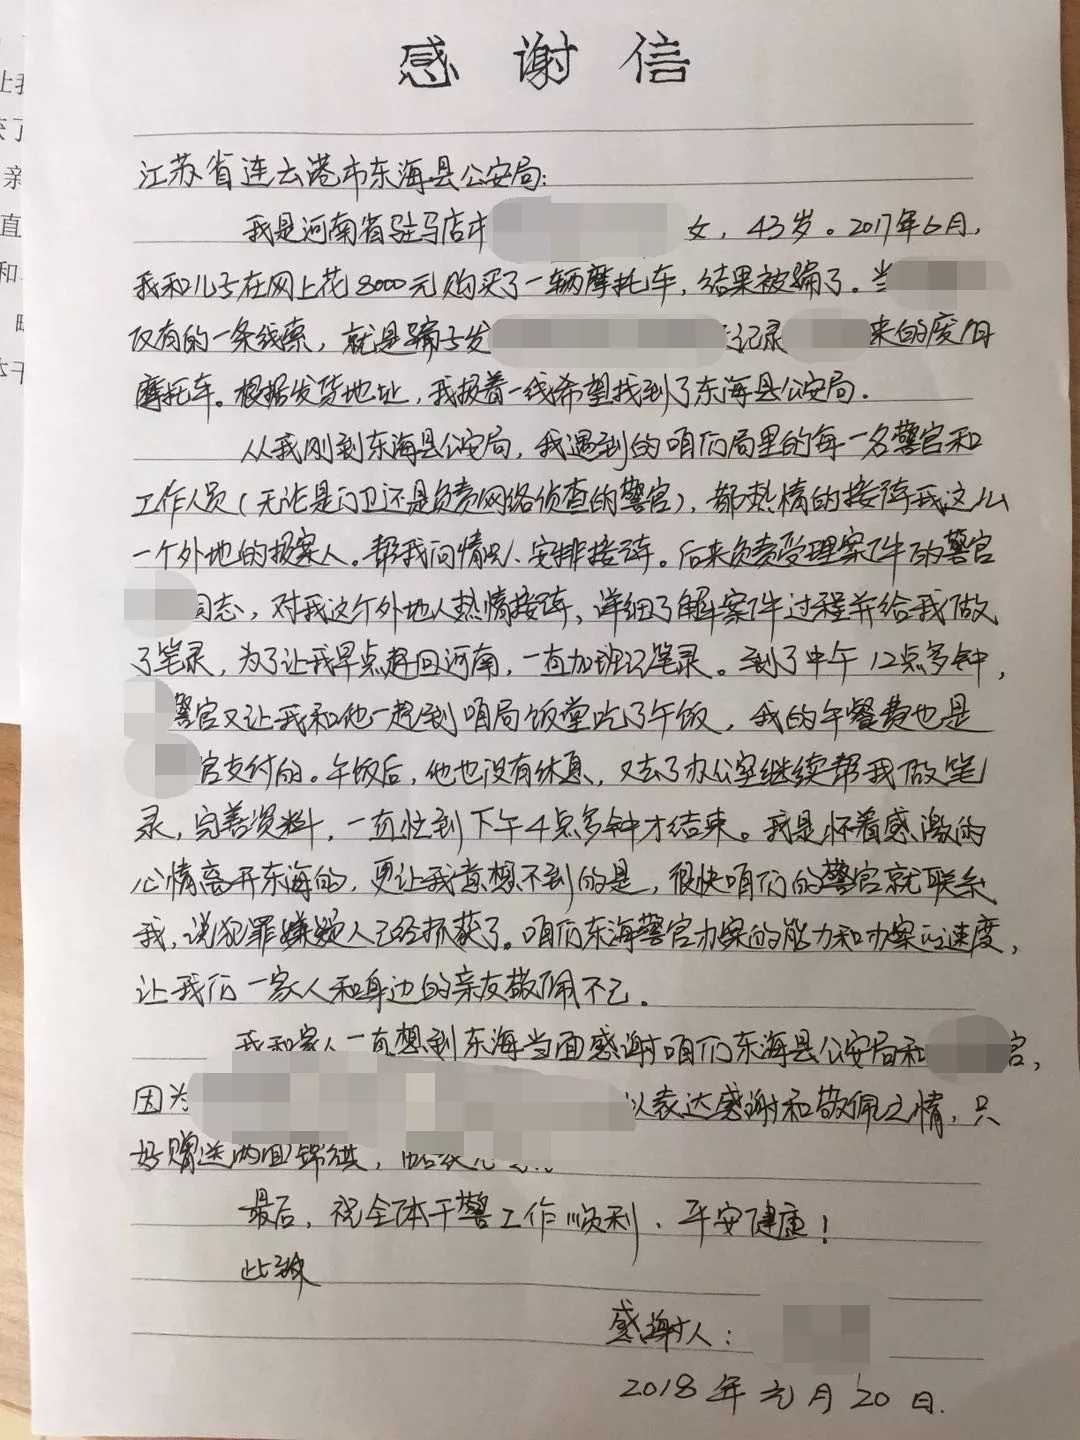 感谢信
江苏省连云港市东海县公安局:
我是河南省驻马店市 女，43岁。2017年6月，
我和儿子在网上花8000元购买了一辆摩托车，结果被骗了。当
仅有的一条线索，就是骗子发 记录 来的废旧
摩托车。根据发货地址，我报着一线希望找到了东海县公安局.
从我刚到东海县公安局，我遇到的咱们局里的每一名警官和
工作人员(无论是门卫还是负责网络侦查的警官)，都热情的接待我这么
一个外地的报案人。帮我问情况、安排接待。后来负责受理案件的警官
同志，对我这个外地人热情接待、详细了解案件过程并给我做
了笔录，为了让我早点赶回河南，一直加班记笔录。到了中午12点多钟，
警官又让我和他一起到咱局饭堂吃了午饭，我的午餐费也是
官支付的。午饭后，他也没有休息，又去了办公室继续帮我做笔
录，完善资料，一直忙到下午4点多钟才结束。我是怀着感激的
心情离开东海的，更让我意想不到的是，很快咱们的警官就联系
我，说犯罪嫌疑人已经抓获了。咱们东海警官办案的能力和办案的速度，
让我们一家人和身边的亲友敬佩不已。
我和家人一直想到东海当面感谢咱们东海县公安局和 官，
因为 以表达感谢和敬佩之情，只
好赠送两面锦旗，
最后，祝全体干警工作顺利、平安健康!
此致
感谢人:
2018年元月20日.